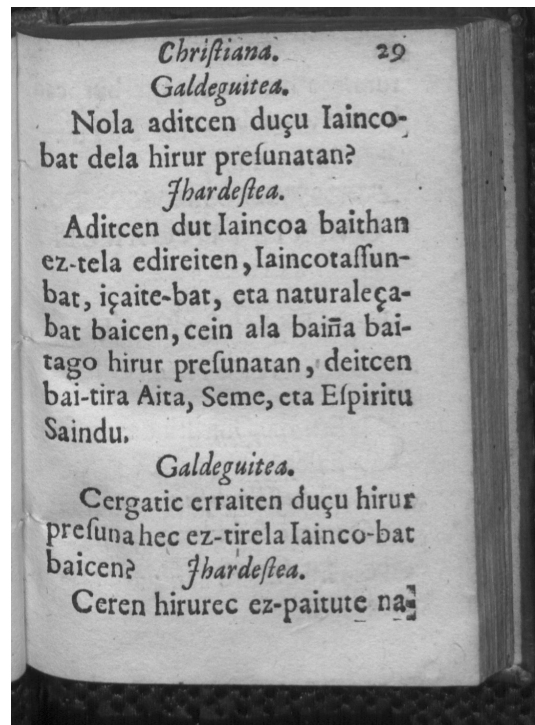 Chriſtiana. 29
Galdeguitea.
Nola aditcen duçu Iainco-
bat dela hirur preſunatan?
Jhardeſtea.
Aditcen dut Iaincoa baithan
ez-tela edireiten, Iaincotaſſun-
bat, içaite-bat, eta naturaleça-
bat baicen, cein ala baiña bai-
tago hirur preſunatan, deitcen
bai-tira Aita, Seme, eta Eſpiritu
Saindu.
Galdeguitea.
Cergatic erraiten duçu hirur
preſuna hec ez-tirela Iainco-bat
baicen? Jhardeſtea.
Ceren hirurec ez-paitute na-